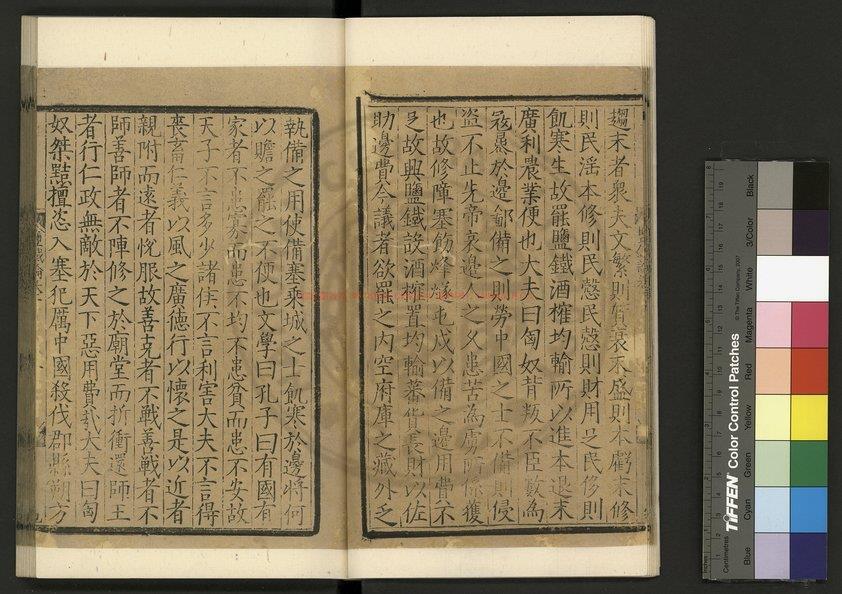 趨末者衆夫文繁則質衰末盛則本虧末修
則民淫本修則民愨民愨則財用足民侈則
飢寒生故罷鹽鐵酒榷均輸所以進本退末
廣利農業便也大夫曰匈奴背叛不臣數為
寇暴於邊鄙備之則勞中國之士不備則侵
盜不止先帝哀邊人之久患苦為虜所係獲
也故修障塞飭烽燧屯戍以備之邊用費不
足故興鹽鐵設酒榷置均輸蕃貨長財以佐
助邊費今議者欲罷之內空府庫之藏外乏
執備之用使備塞乘城之士飢寒於邊將何
以贍之罷之不便也文學曰孔子曰有國有
家者不患寡而患不均不患貧而患不安故
天子不言多少諸侯不言利害大夫不言得
喪畜仁義以風之廣德行以懷之是以近者
親附而遠者悅服故善克者不戰善戰者不
師善師者不陣修之於廟堂而折衝還師王
者行仁政無敵於天下惡用費哉大夫曰匈
奴桀黠擅恣入塞犯厲中國殺伐郡縣朔方
TIFFEN Color Control Patches
© The Tiffen Company, 2007
Centimetres
Inches
Blue
Cyan
Green
Yellow
Red
Magenta
White
3/Color
Black